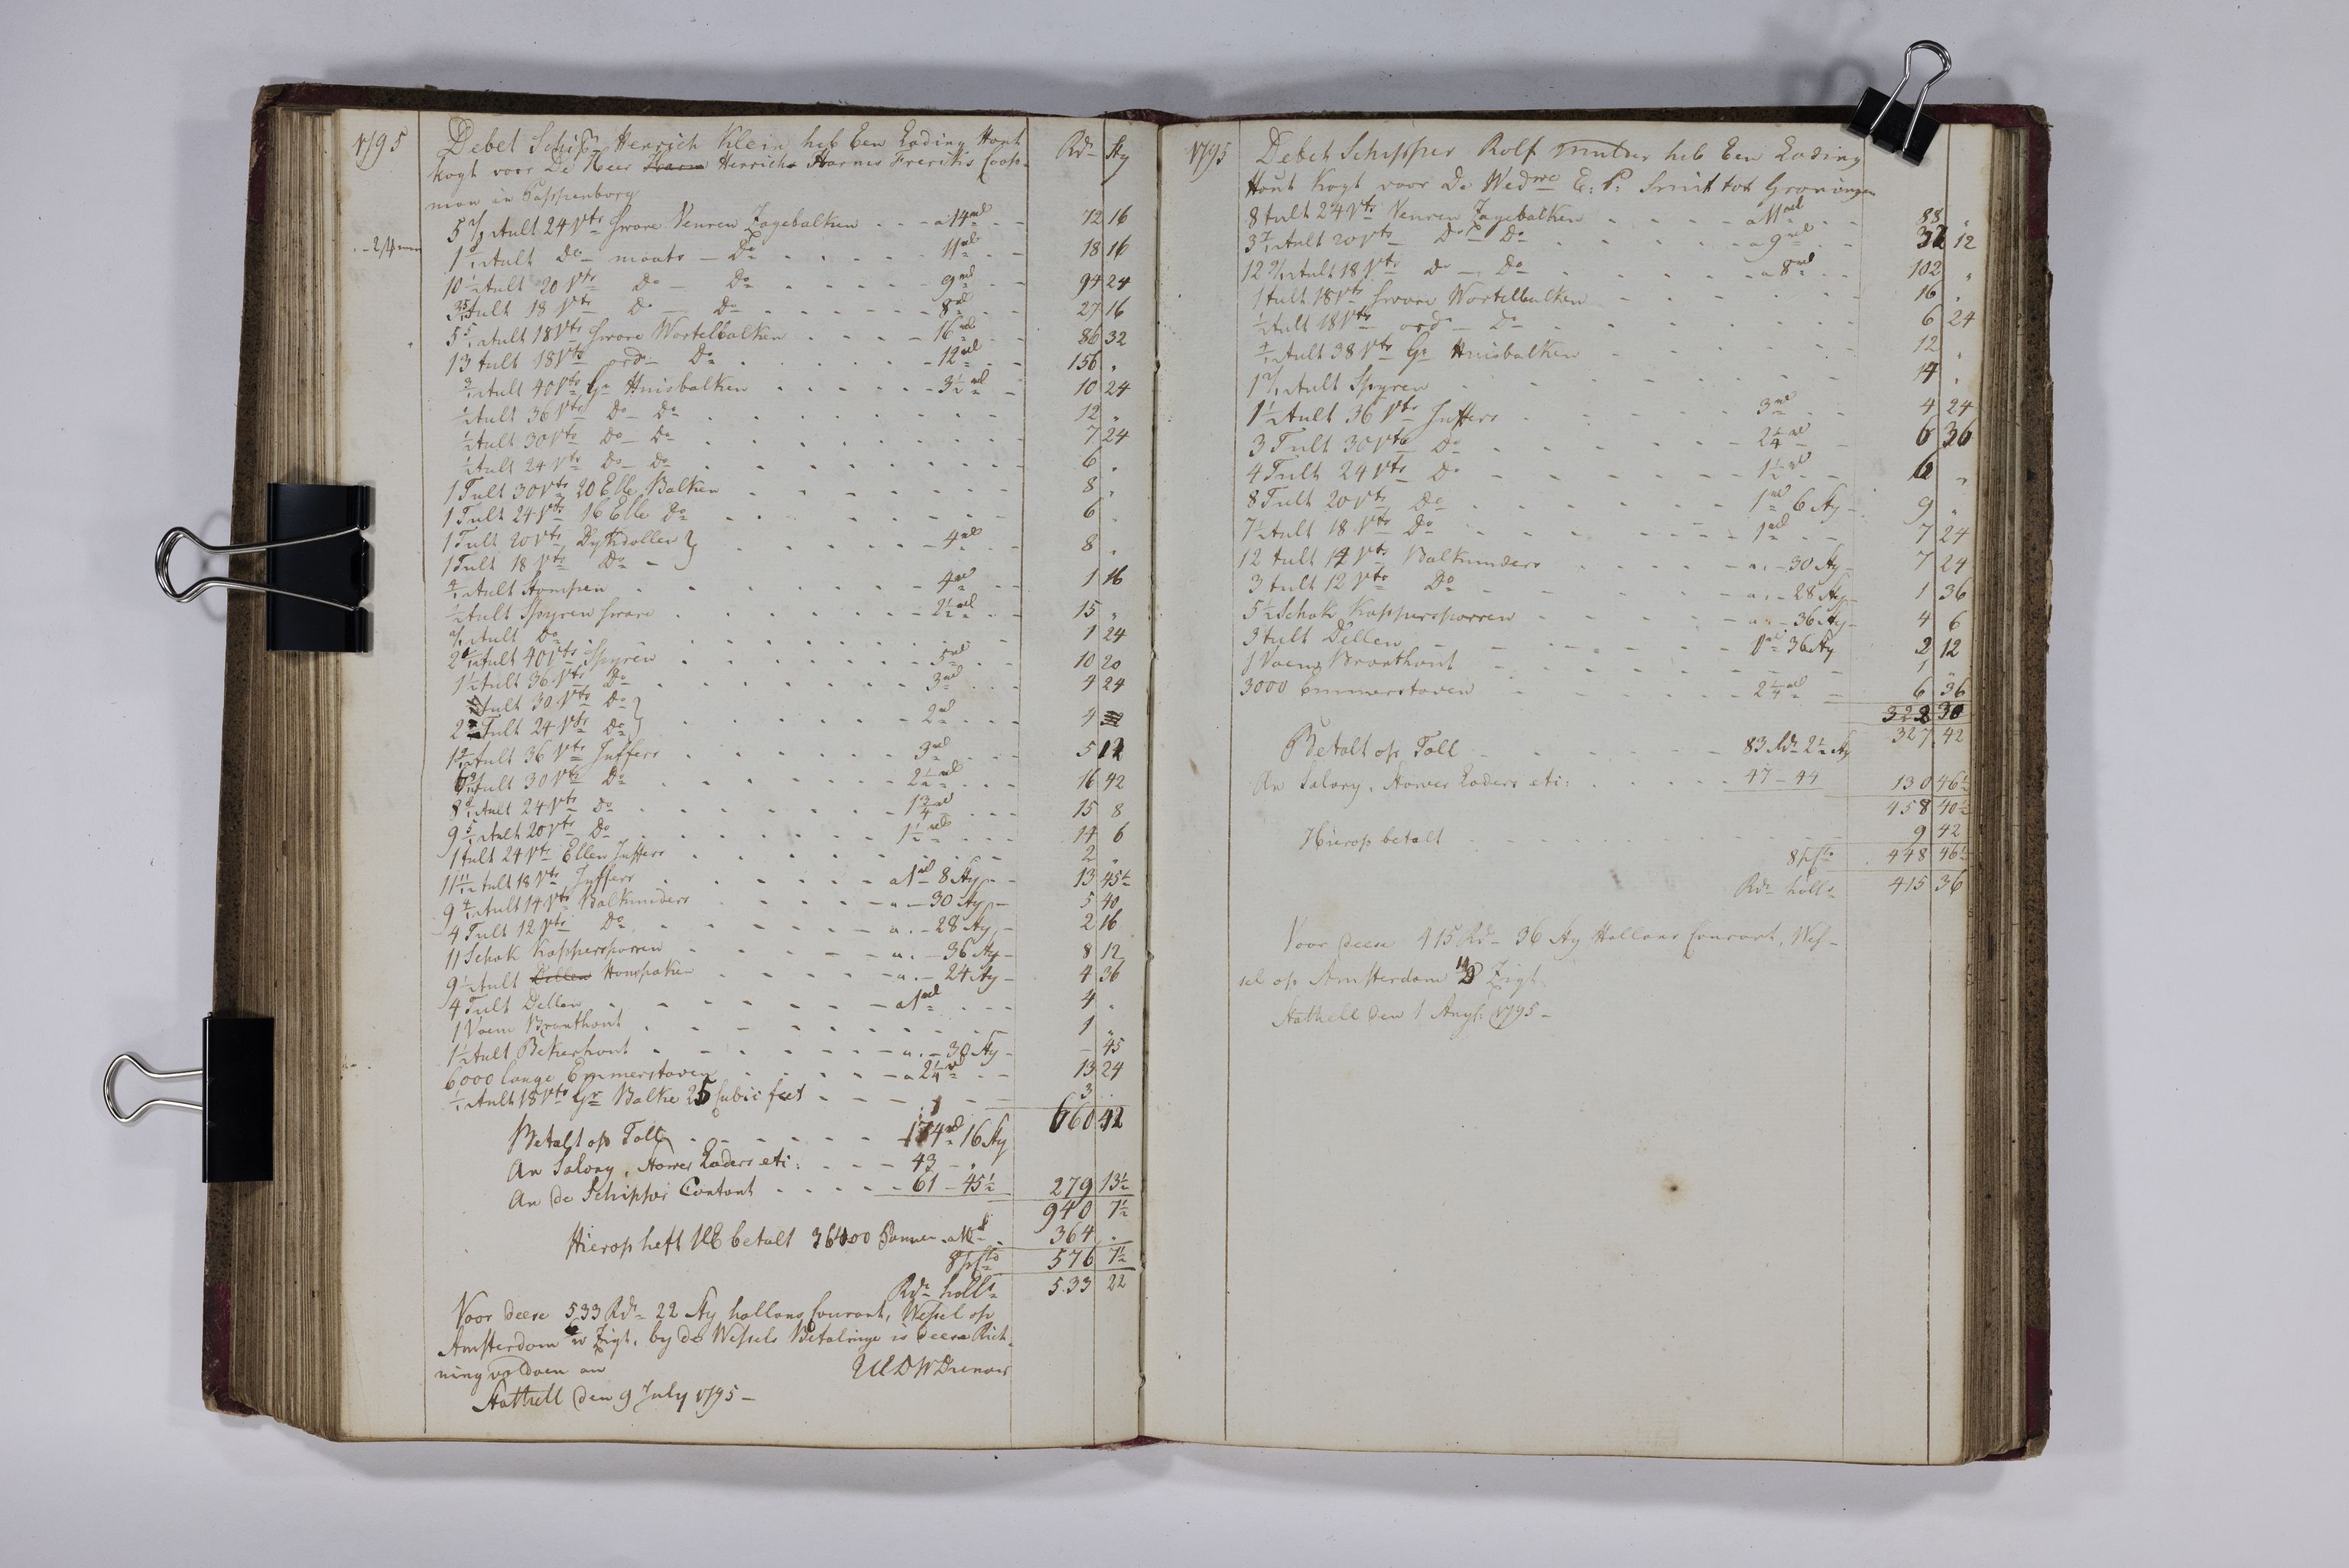 1795 Debet Schipr Henrich Klein heb Een Lading Hout Rdr Sty
kogt voor De Heer Harm Henrichs Harmes Frerichs Coop-
man in Pappenborg
5 2/1 tult 24 vts sware Veuren Zagebalken a 14 rd 72 16
1 tult Do maats Do 11 rd 18 16
10 1/2 tult 20 vts Do Do 9 rd 94 24
tult 18 vts Do Do 8 rd 27 16
5 5/1 tult 18 vts sware Wortelbalken 16 rd 86 32
13 tult 18 vts ord Do 12 rd 156 "
3/1 tult 40 vts Gr Huisbalken 3 1/2 rd 10 24
1/2 tult 36 vts Do Do 12 "
1/2 tult 30 vts Do Do 7 24
1/2 tult 24 vts Do Do 6 "
1 Tult 30 vts 20 Elle Balken 8 "
1 Tult 24 vts 16 Elle Do 6 "
1 Tult 20 vts Dykdollen } 4 rd 8 "
1 Tult 18 vts Do
4/1 tult Stompen 4 rd 1 16
tult Spyren sware 2 1/2 rd 15 "
tult Do 1 24
2 tult 40 vts Spyren 5 rd 10 20
1 1/2 tult 36 vts Do 3 rd 4 24
tult 30 vts Do }
2 Tult 24 vts Do 2 rd 4
1 tult 36 vts Juffers 3 rd 5 12
6 tult 30 vts Do 2 1/2 rd 16 42
8 tult 24 vts Do 1 3/4 rd 15 8
9 5/1 tult 20 vts Do 1 1/2 rd 14 6
1 tult 24 vts Ellen Juffers 2 "
11 11/1 tult 18 vts Juffers a 1 rd 8 Sty 13 45 1/2
9 4/1 tult 14 vts Balkunders a - 30 Sty 5 40
4 Tult 12 vts Do a - 28 Sty 2 16
11 Schok Kappersporren a - 36 Sty 8 12
9 1/2 tult Dellen Honspaken a - 24 Sty 4 36
4 Tult Dellen a 1 rd 4 "
1 Vaem Branthout 1 "
1 1/2 tult Bekerhout a - 30 Sty - 45
6000 lange Emmerstaven a 2 1/4 rd 13 24
1/2 tult 18 vts Gr Balke 25 Cubic feet 3
660 42
Betalt op Toll 174 rd 16 Sty
An Salary, Stower Laders etc: 43 - "
An de Schipper Contant 61 - 45 1/2 279 13 1/2
940 7 1/2
Hierop heft UE betalt 36400 Pannen a 10 rd 364 "
8 pCto 576 7 1/2
Rdr holls 533 22
Voor deese 533 Rdr 22 Sty hollans Courant, Wessel op
Amsterdam Zigt, by de Wessels Betalinge is deese Rick-
ning voldaen an UEDWDienaer
Stathell den 9 July 1795 -
1795 Debet Schipper Rolf Mulder heb Een Lading
Hout kogt voor De Wedwe E: P: Smit tot Groningen
8 tult 24 vts Veuren Zagebalken a 11 rd 88 "
3 7/1 tult 20 vts Do Do a 9 rd 32 12
12 9/1 tult 18 vts Do Do a 8 rd 102 "
1 tult 18 vts sware Wortelbalken 16 "
1/2 tult 18 vts ord Do 6 24
4/1 tult 38 vts Gr Huisbalken 12 "
1 2/1 tult Spyren 14 "
1 1/2 tult 36 vts Juffers 3 rd 4 24
3 Tult 30 vts Do 2 1/4 rd 6 36
4 Tult 24 vts Do 1 1/2 rd 6 "
8 Tult 20 vts Do 1 rd 6 Sty 9 "
7 1/2 tult 18 vts Do 1 rd 7 24
12 tult 14 vts Balkunders a - 30 Sty 7 24
3 tult 12 vts Do a - 28 Sty 1 36
5 1/2 Schok Kappersporren a - 36 Sty 4 6
3 tult Dellen 36 Sty 2 12
1 Vaem Branthout 1 "
3000 Emmerstaven 2 1/4 rd 6 36
322 30
Betalt op Toll 83 Rdr 2 1/2 Sty 327 42
An Salary, Stower Laders etc: 47 - 44 130 46 1/2
458 40 1/2
Hierop betalt 9 42
8 pCto 448 46 1/2
Rdr holls 415 36
Voor deese 415 Rdr 36 Sty Hollans Courant, Wes-
sel op Amsterdam Zigt
Stathell den 1 Aug: 1795 -